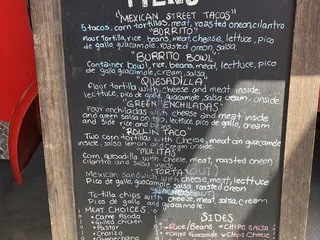 MENU
"MEXICAN STREET TACOS"
5 tacos, corn tortillas, meat, roasted onion cilantro
"BURRITO"
Flour tortilla, rice, beans, meat, cheese, lettuce, pico
de gallo guacamole, roasted onion, salsa
"BURRITO BOWL"
Container bowl, rice, beans, meat, lettuce, pico
guacamole, cream, salsa
"QUESADILLA"
Flour tortilla with cheese and meat inside,
lettuce, pico de gallo, guacamole, salsa, cream
GREEN ENCHILADAS
Four enchiladas with cheese and meat inside
and green salsa on top, lettuce, cream
side rice and
ROLLIN TACO
Two corn tortillas with cheese, meat an guacamole
inside, salsa lemon and onion inside
"MULITA"
Corn, quesadilla with cheese, meat, roasted onion
cilantro and inside.
TORTA
Mexican Sandwich with cheese, meat, lettuce,
Pico de gallo, guacamole, salsa, roasted onion
NACHOS
Tortilla chips with cheese, meat, lettuce
Pico de gallo, guacamole, cream
MEAT CHOICES
Carne Asada
Grilled Chicken
Pastor
Chorizo
SIDES
Rice/Beans
CHIPS SALSA
Chips Guacamole
Chips Cheese